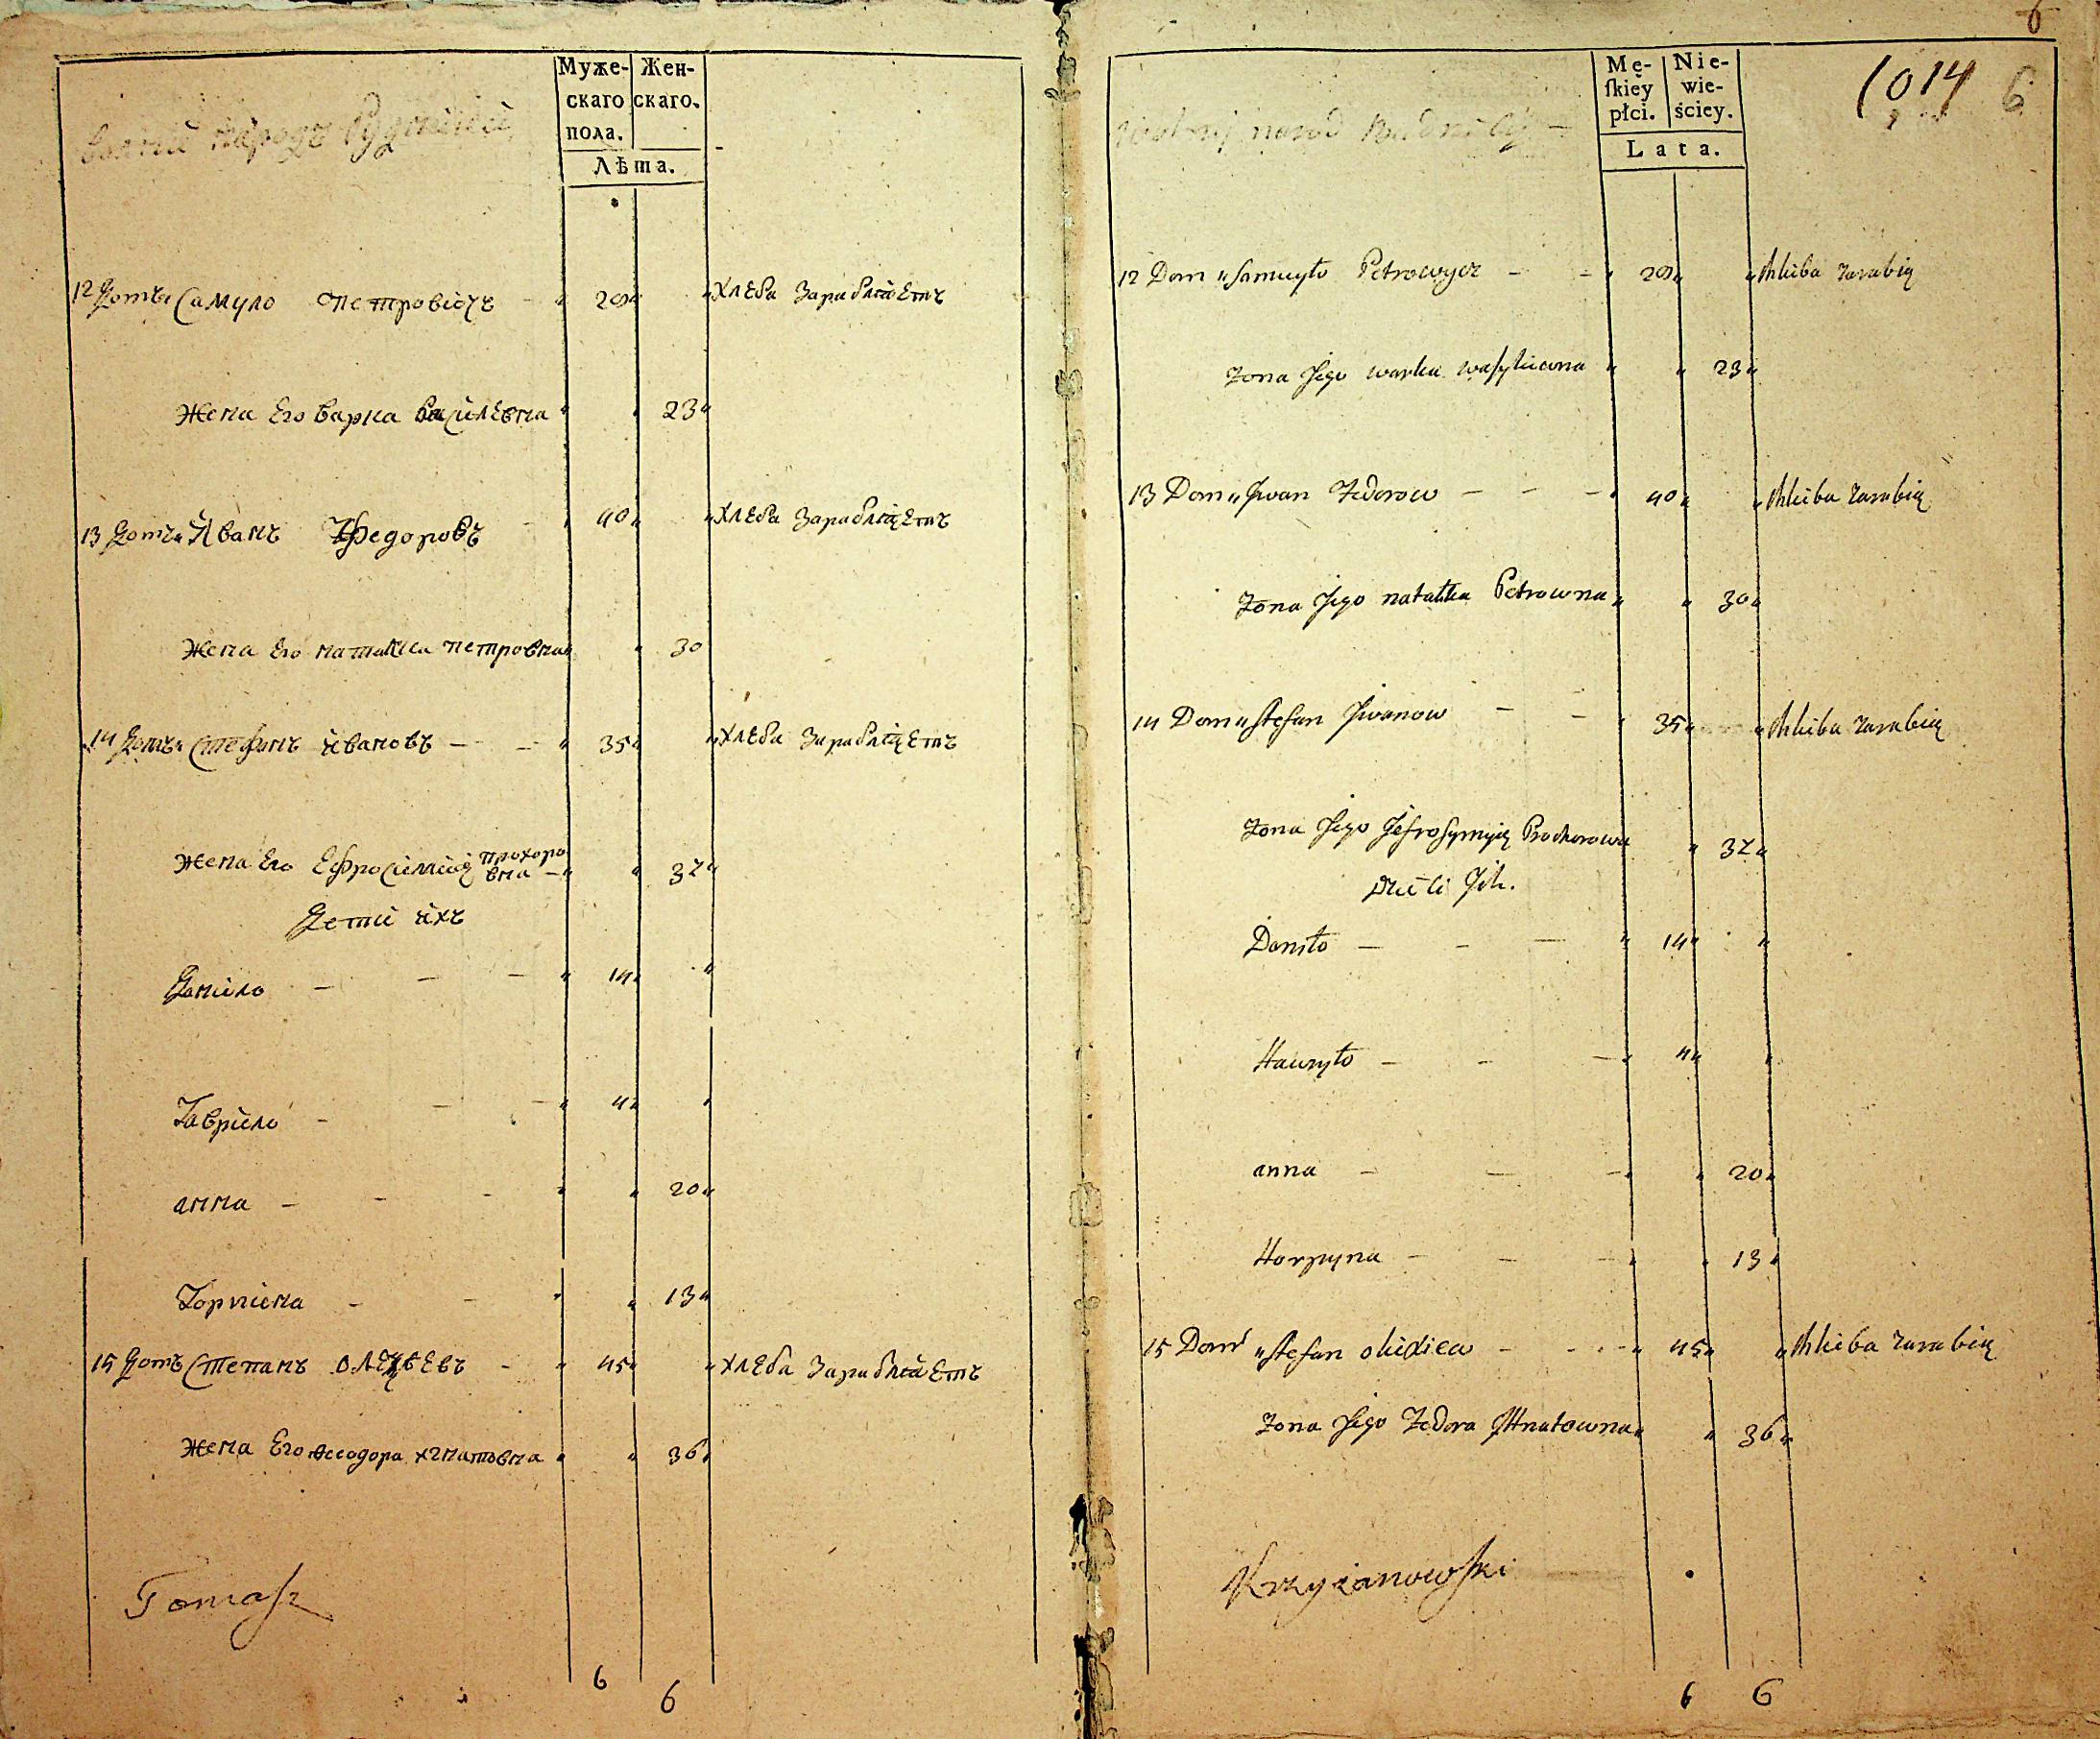 Муже-
скаго
пола.
Жен-
скаго.
Лѣта.
12 Домъ Самуло Петровичъ - 29 Хлеба зараблаетъ
Жена Его Варка Василевна 23
13 Домъ Иванъ Федоровъ - 40 Хлеба зарабляетъ
Жена Его Наталка Петровна 30
14 Домъ Стефанъ Ивановъ - 35 Хлеба зарабляетъ
Жена Его Ефросиния Прохоро
вна - 37
Дети ихъ
Данило - 14
Гаврило - 4
анна - 20
Горпина - 13
15 Домъ Степанъ 45 Хлеба зараблаетъ
Жена Его Феодора 36
Tomasz
6
6
6
Mę-
ſkiey
płci.
Nie-
wie-
ściey.
Lata.
1014 6
wolny narod
12 Dom Samuyło Petrowycz - 29 chliba zarabią
żona Jego warka wasyliewna 23
13 Dom Jwan Fedorow - 40 chliba zarabią
żona Jego natałka Petrowna 30
14 Dom Stefan Jwanow - 35 chliba zarabią
żona Jego Jefrosynyią Prochorowa 37
Dzieci Jch.
Daniło - 14
Hawryło - 4
anna - 20
Horpyna - 13
15 Dom Stefan 45 chliba zarabią
żona Jego Fedora Hnatowna 36
Krzyżanowſki
6 6